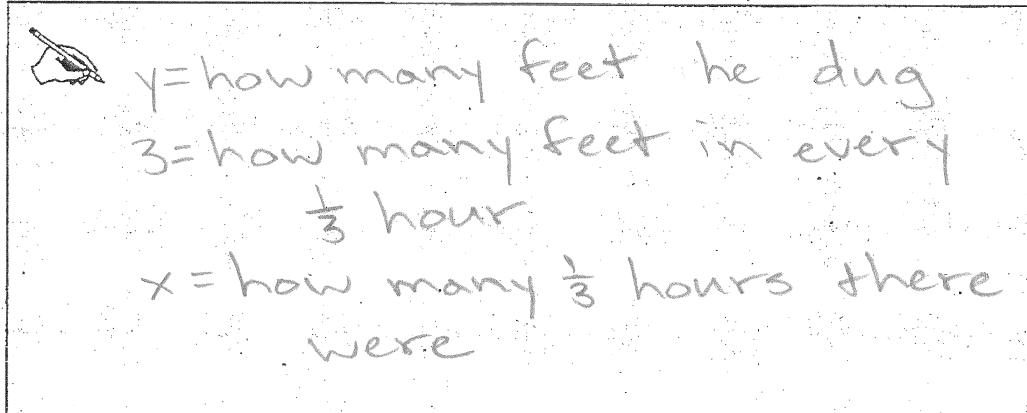 y=how many feet he dug
3=how many feet in every
1/3 hour
x=how many 1/3 hours there
were